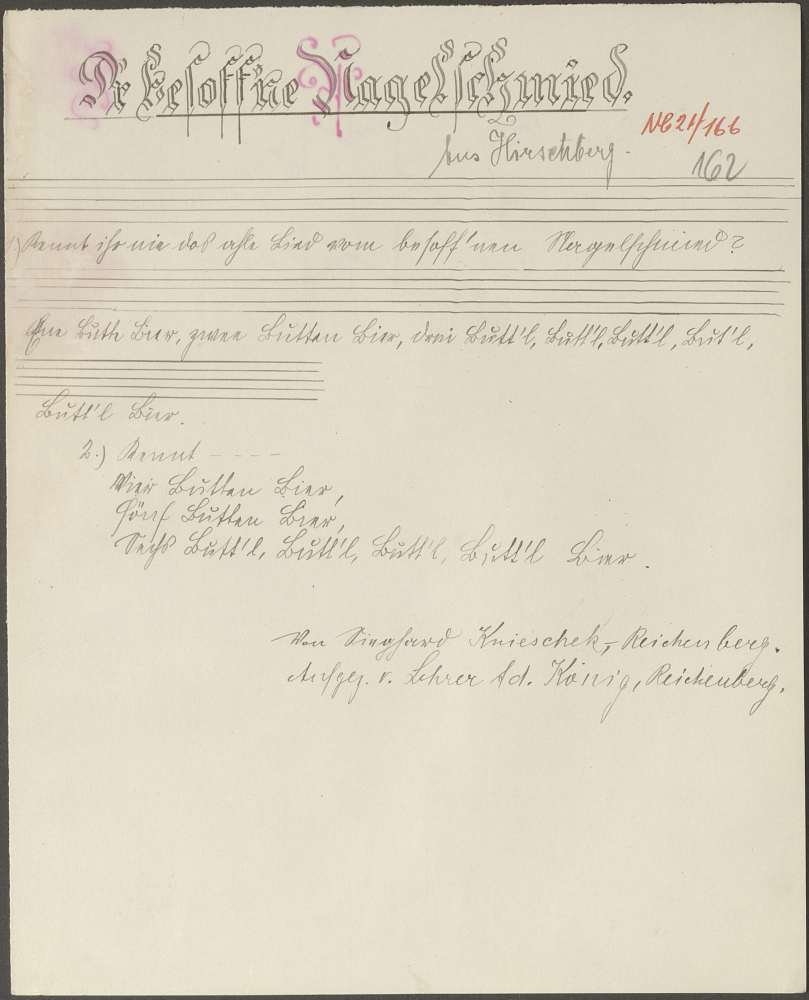 Dr besoff'ne Nagelschmied.
NB 21/166
Aus Hirschberg.
162
1.) Kennt ihr nie das ahle Lied vom besoff'nen Nagelschmied?
Ene Butte Bier, zwee Butten Bier, drei Butt'l, Butt'l, Butt'l, But'l,
Butt'l Bier.
2.) Kennt - - - -
Vier Butten Bier,
Fönf Butten Bier,
Sechs Butt'l, Butt'l, Butt'l, Butt'l Bier.
Von Sieghard Knieschek, Reichenberg.
Aufgez. v. Lehrer Ad. König, Reichenberg.